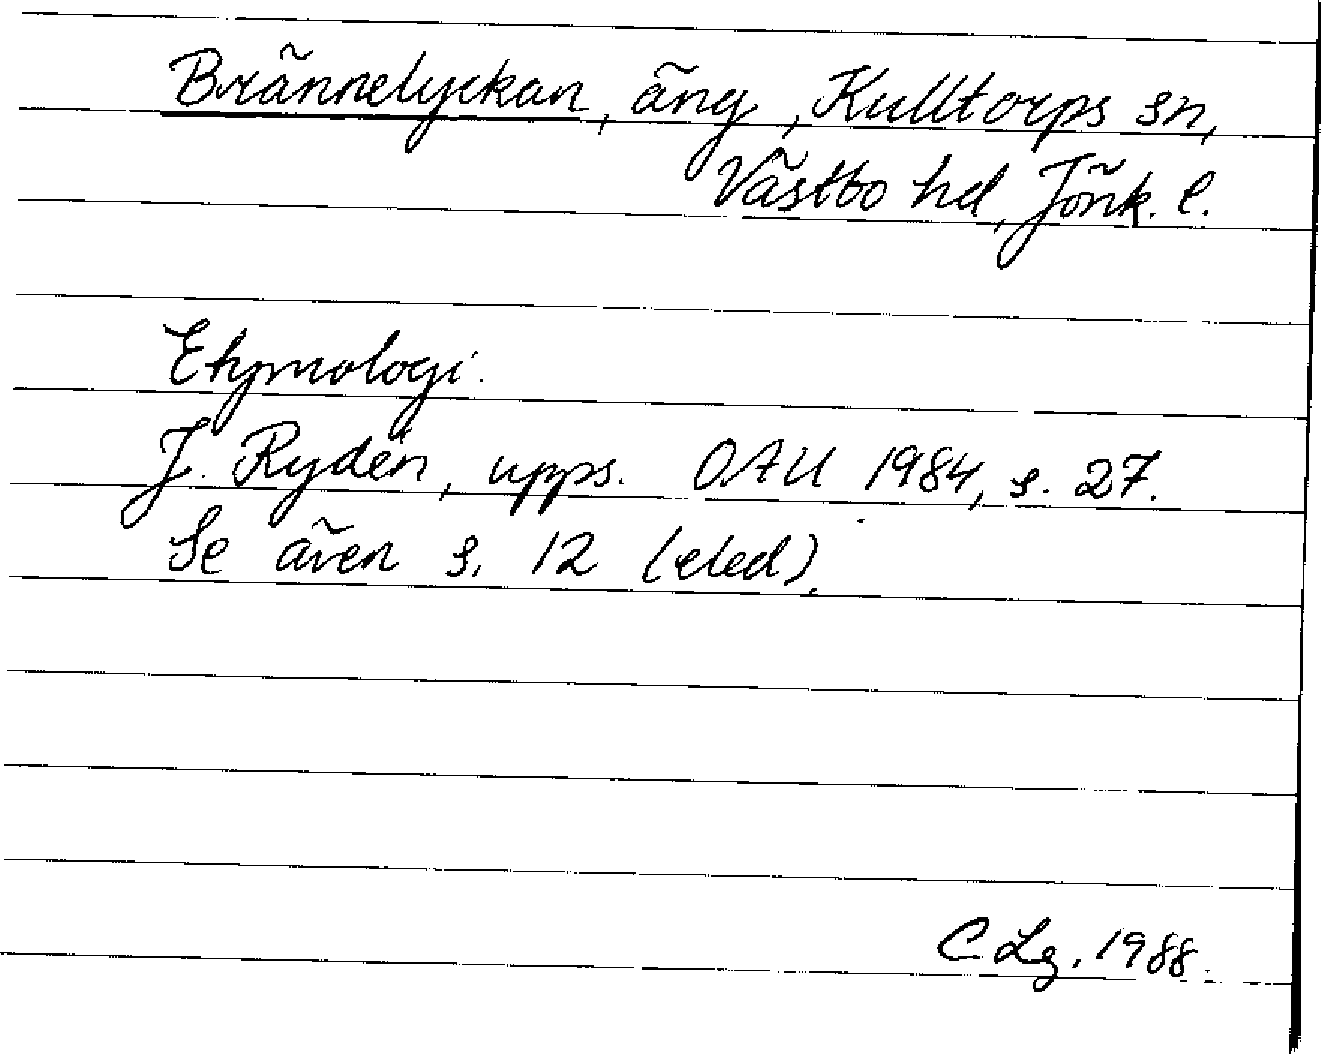 Brännelyckan, äng, Kulltorps sn,
Västbo hd, Jönk. l.
Etymologi.
J. Rydén, upps. OAU 1984, s. 27.
Se även s. 12 (eled).
C Lg. 1988.